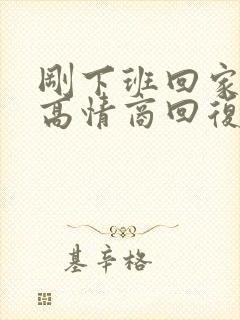 剛下班回家
高情商回復
基辛格